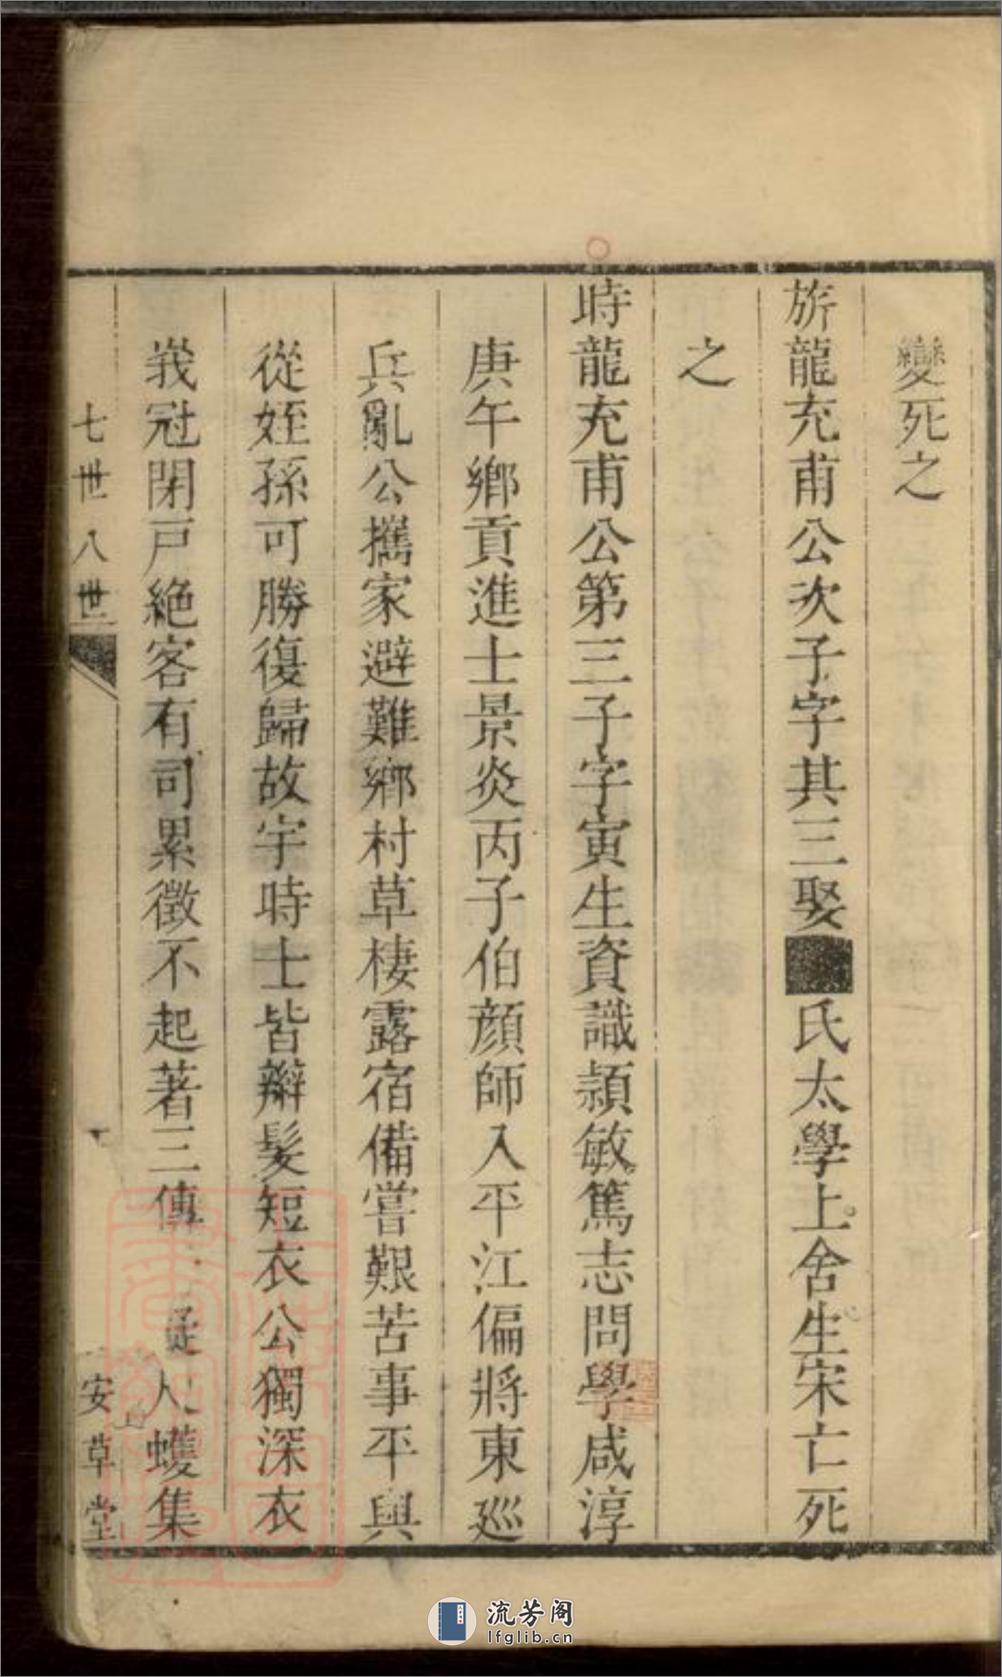 變死之
旂龍充甫公次子字其三娶氏太學上舍生宋亡死
之
時龍充甫公第三子字寅生資識頴敏篤志問學咸淳
庚午鄉貢進士景炎丙子伯顏師入平江偏將東巡
兵亂公攜家避難鄉村草棲露宿備嘗艱苦事平與
從姪孫可勝復歸故宇時士皆辮髮短衣公獨深衣
峩冠閉戸絶客有司累徵不起著三傳 人蠖集
七世八世
安草堂
流芳阁
lfglib.cn